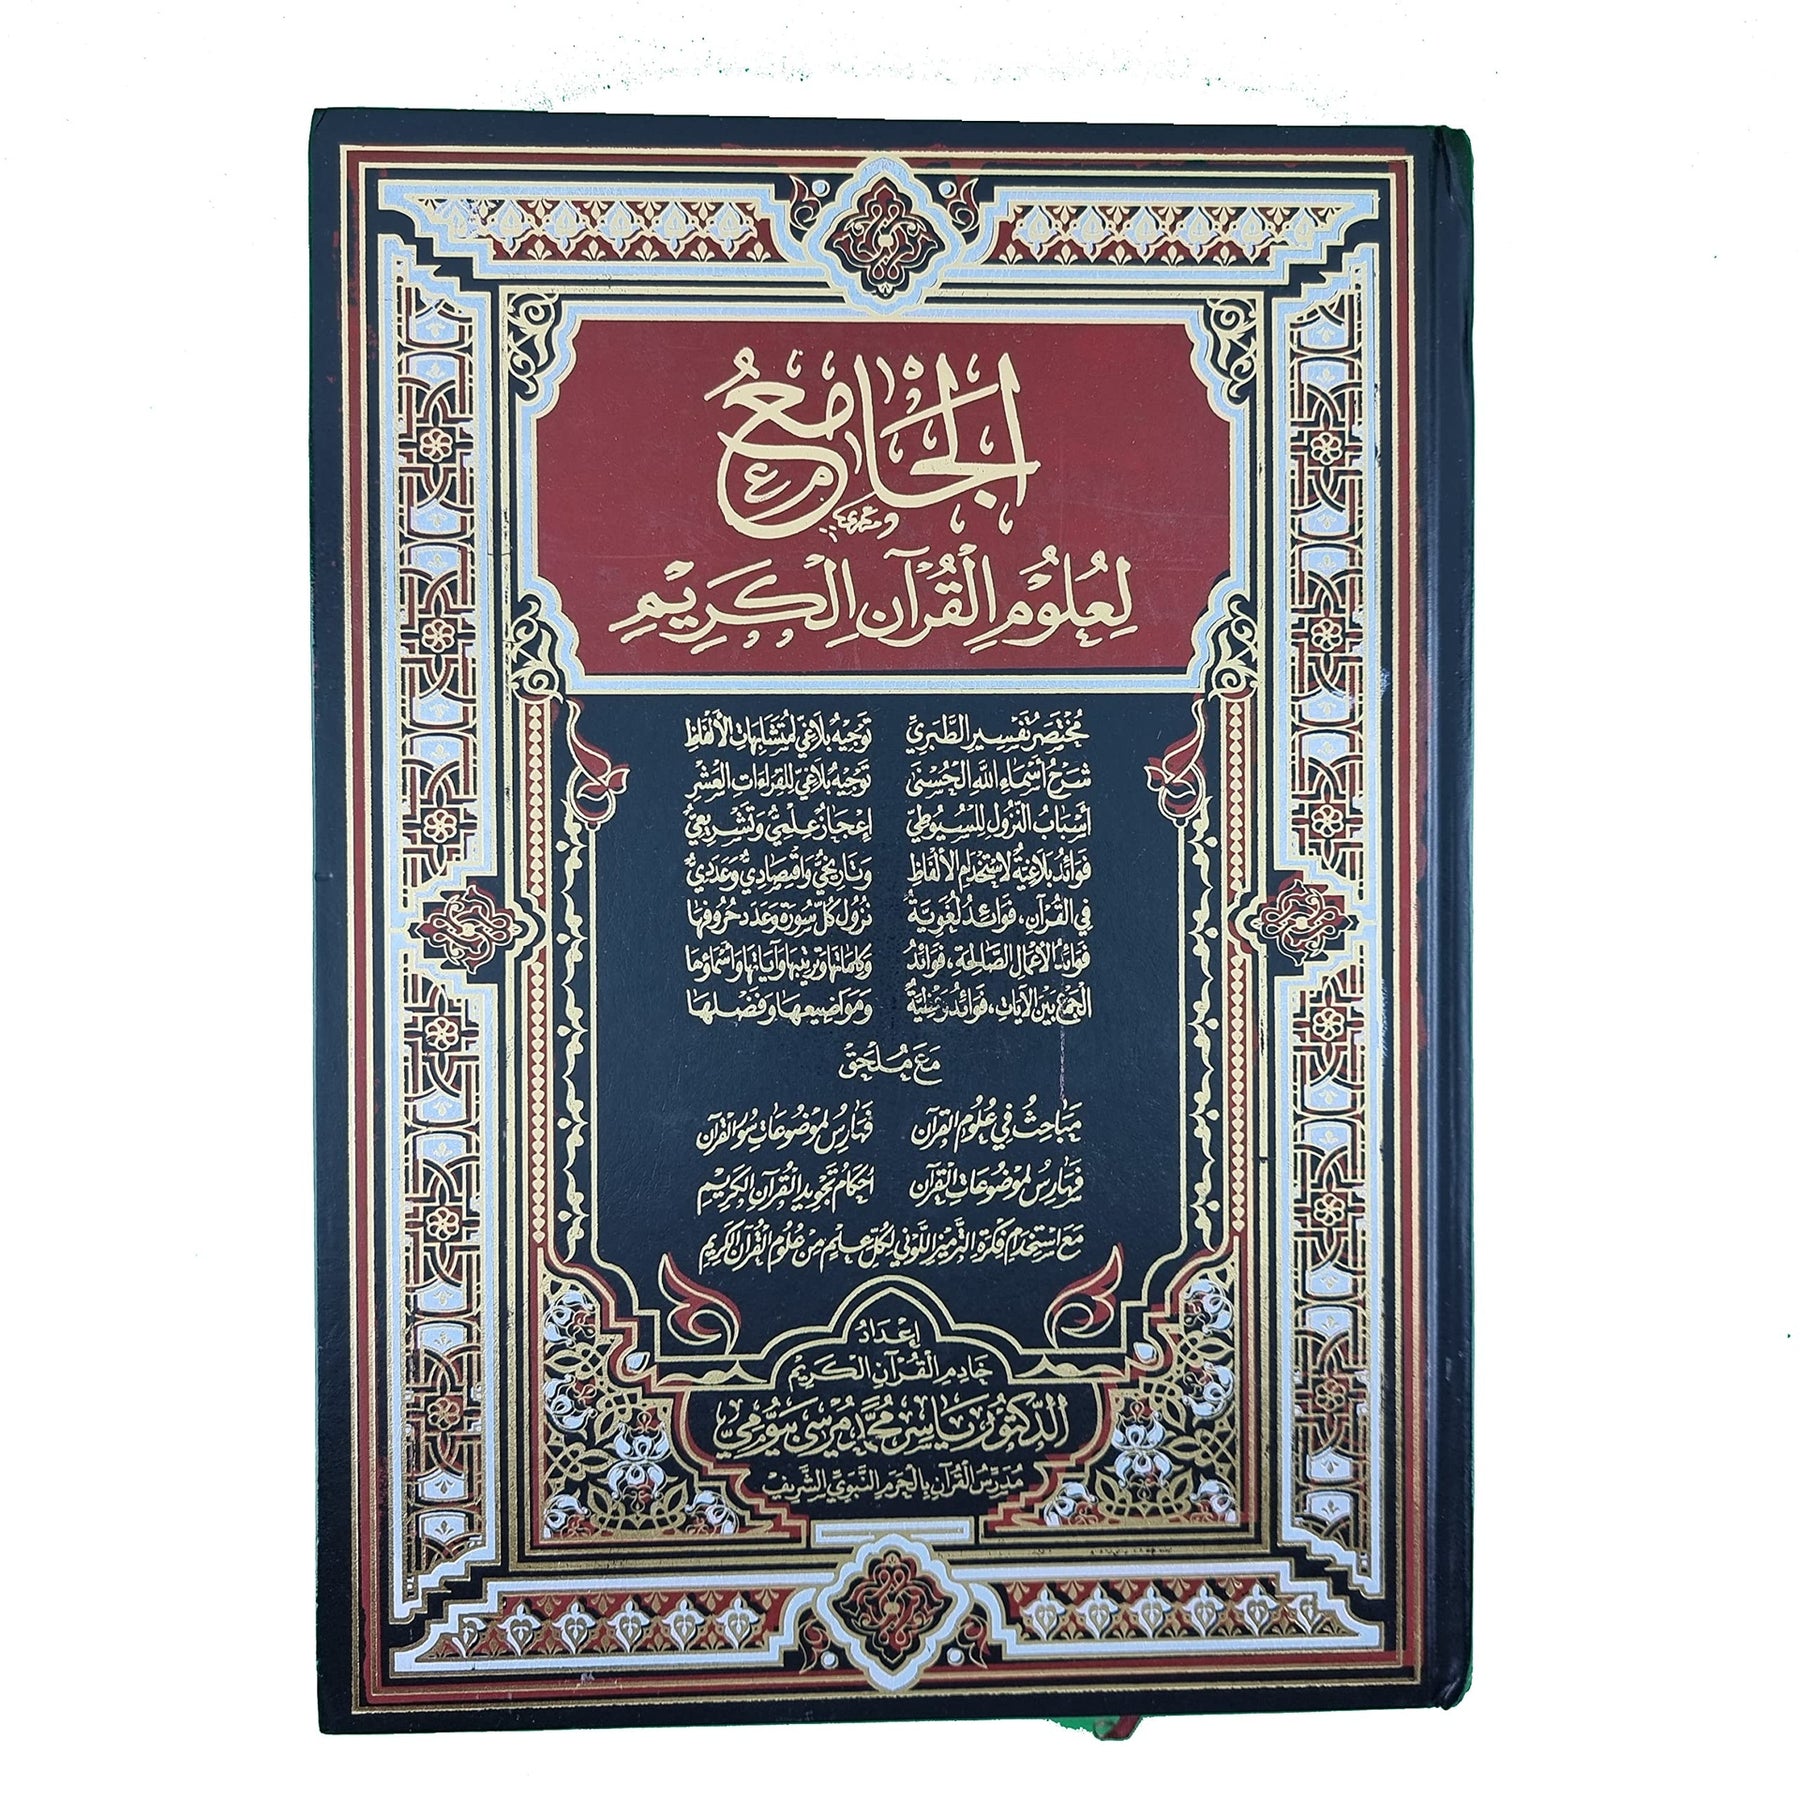 الجَامِعُ
لِعُلُومِ الْقُرْآنِ الْكَرِيْمِ
مُخْتَصَرُ تَفْسِيرِ الطَّبَرِيِّ
شَرْحُ أَسْمَاءِ اللهِ الْحُسْنَى
أَسْبَابُ النُّزُولِ لِلسُّيُوطِيِّ
فَوَائِدُ بَلَاغِيَّةٌ لِاسْتِخْدَامِ الْأَلْفَاظِ
فِي الْقُرْآنِ، فَوَائِدُ لُغَوِيَّةٌ
فَوَائِدُ الْأَعْمَالِ الصَّالِحَةِ، فَوَائِدُ
الْجَمْعِ بَيْنَ الْآيَاتِ، فَوَائِدُ
تَوْجِيْهٌ بَلَاغِيٌّ لِمُتَشَابِهَاتِ الْأَلْفَاظِ
تَوْجِيْهٌ بَلَاغِيٌّ لِلْقِرَاءَاتِ الْعَشْرِ
إِعْجَازٌ عِلْمِيٌّ وَتَشْرِيعِيٌّ
وَتَارِيخِيٌّ وَاقْتِصَادِيٌّ وَعَدَدِيٌّ
نُزُولُ كُلِّ سُورَةٍ وَعَدَدُ حُرُوفِهَا
وَكَلِمَاتِهَا وَتَرْتِيبِهَا وَآيَاتِهَا وَأَسْمَاؤُهَا
وَمَوَاضِيعِهَا وَفَضْلِهَا
مَعَ مُلْحَقٍ
مَبَاحِثُ فِي عُلُومِ الْقُرْآنِ
فَهَارِسُ لِمَوْضُوعَاتِ سُوَرِ الْقُرْآنِ
فَهَارِسُ لِمَوْضُوعَاتِ الْقُرْآنِ
أَحْكَامُ تَجْوِيدِ الْقُرْآنِ الْكَرِيمِ
مَعَ اسْتِخْدَامِ فِكْرَةِ التَّرْمِيزِ اللَّوْنِي لِكُلِّ عِلْمٍ مِنْ عُلُومِ الْقُرْآنِ الْكَرِيمِ
إِعْدَادُ
خَادِمِ الْقُرْآنِ الْكَرِيْمِ
الدُّكْتُورْ يَاسِرْ مُحَمَّدْ مُرْسِى بَيُّومِي
مُدَرِّسِ الْقُرْآنِ بِالْحَرَمِ النَّبَوِيِّ الشَّرِيفِ